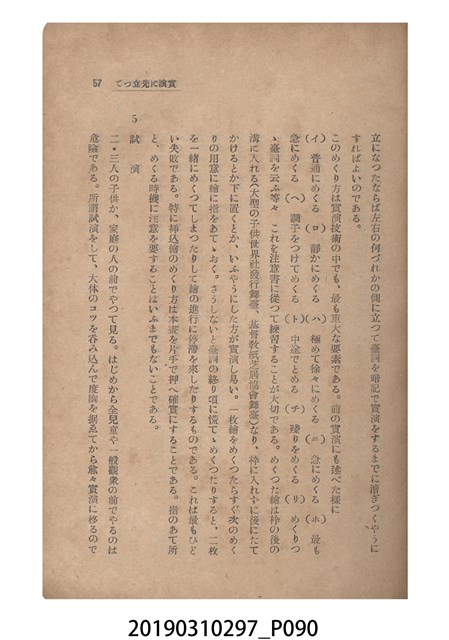 實演に先立つて
57
立になつたならば左右の何づれかの側に立つて臺詞を暗記で實演をするまでに漕ぎつくやうに
すればよいのである。
このめくり方は實演技術の中でも、最も重大な要素である。前の實演にも述べた樣に
(イ) 普通にめくる (ロ) 靜かにめくる (ハ) 極めて徐々にめくる (ニ) 急にめくる (ホ) 最も
急にめくる (ヘ) 調子をつけてめくる (ト) 中途でとめる (チ) 殘りをめくる (リ) めくりつ
ゝ臺詞を云ふ等々 これを注意書に從つて練習することが大切である。めくつた繪は枠の後の
溝に入れる(大型の子供世界社發行舞臺、基督敎紙芝居協會舞臺)なり、枠に入れずに後にたて
かけるとか下に置くとか、いふやうにした方が實演し易い。一枚繪をめくつたらすぐ次のめく
りの用意に繪に指をあてゝおく。さうしないと臺詞の終り頃に慌てゝめくつたりすると、二枚
を一緖にめくつてしまつたりして繪の進行に停滯を來したりするものである。これは最もひど
い失敗である。特に揷込繪のめくり方は本畫を片手で押へ確實にすることである。指のあて所
と、めくる時機に注意を要することはいふまでもないことである。
5 試演
二・三人の子供か、家庭の人の前でやつて見る。はじめから全兒童や一般觀衆の前でやるのは
危險である。所謂試演をして、大体のコツを呑み込んで度胸を据ゑてから愈々實演に移るので
20190310297_P090